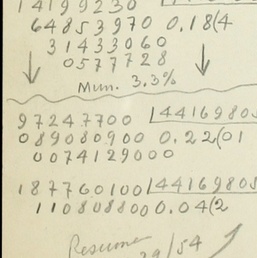 14199230
64853970 0.18(4
31433060
0577728
Mun. 3.3%
97247700 |44169805
089080900 0.22(01
0074129000
187760100 |44169805
110808800 0.04(2
Resume
29/54